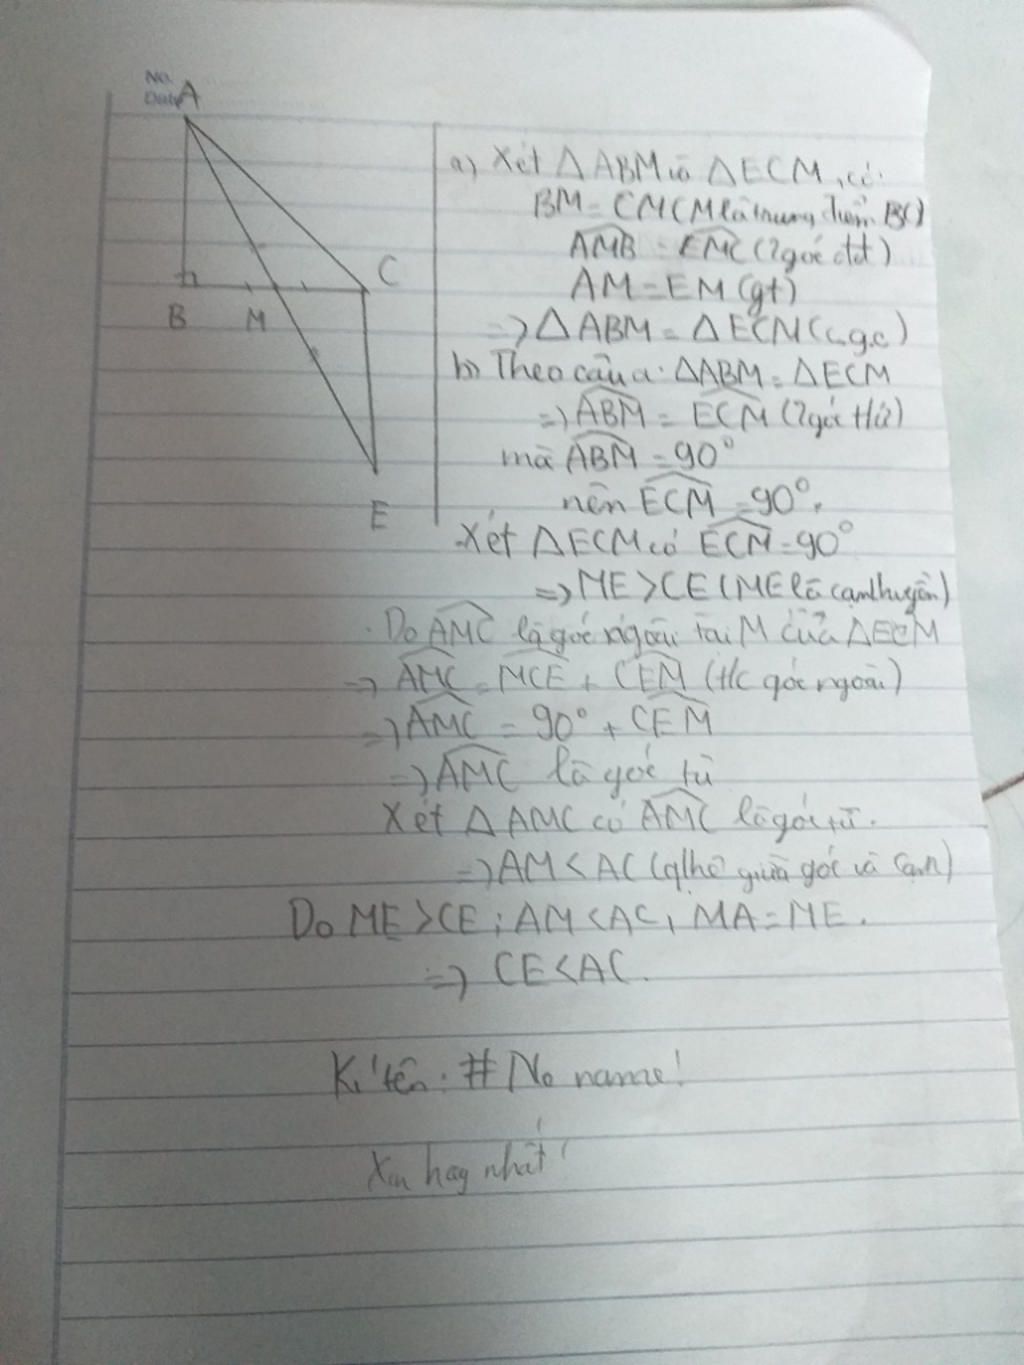 No.
Date
A
B
M
C
E
a) Xét ΔABM và ΔECM, có:
BM = CM (M là trung điểm BC)
AMB = EMC (2 góc đđ)
AM = EM (gt)
=> ΔABM = ΔECM (c.g.c)
b) Theo câu a: ΔABM = ΔECM
=> ABM = ECM (2 góc t/ứ)
mà ABM = 90°
nên ECM = 90°.
Xét ΔECM có ECM = 90°
=> ME > CE (ME là cạnh huyền)
Do AMC là góc ngoài tại M của ΔECM
=> AMC = MCE + CEM (t/c góc ngoài)
=> AMC = 90° + CEM
=> AMC là góc tù
Xét ΔAMC có AMC là góc tù.
=> AM < AC (q/hệ giữa góc và cạnh)
Do ME > CE; AM < AC, MA = ME.
=> CE < AC.
Kí tên: # No name!
Xin hay nhất!